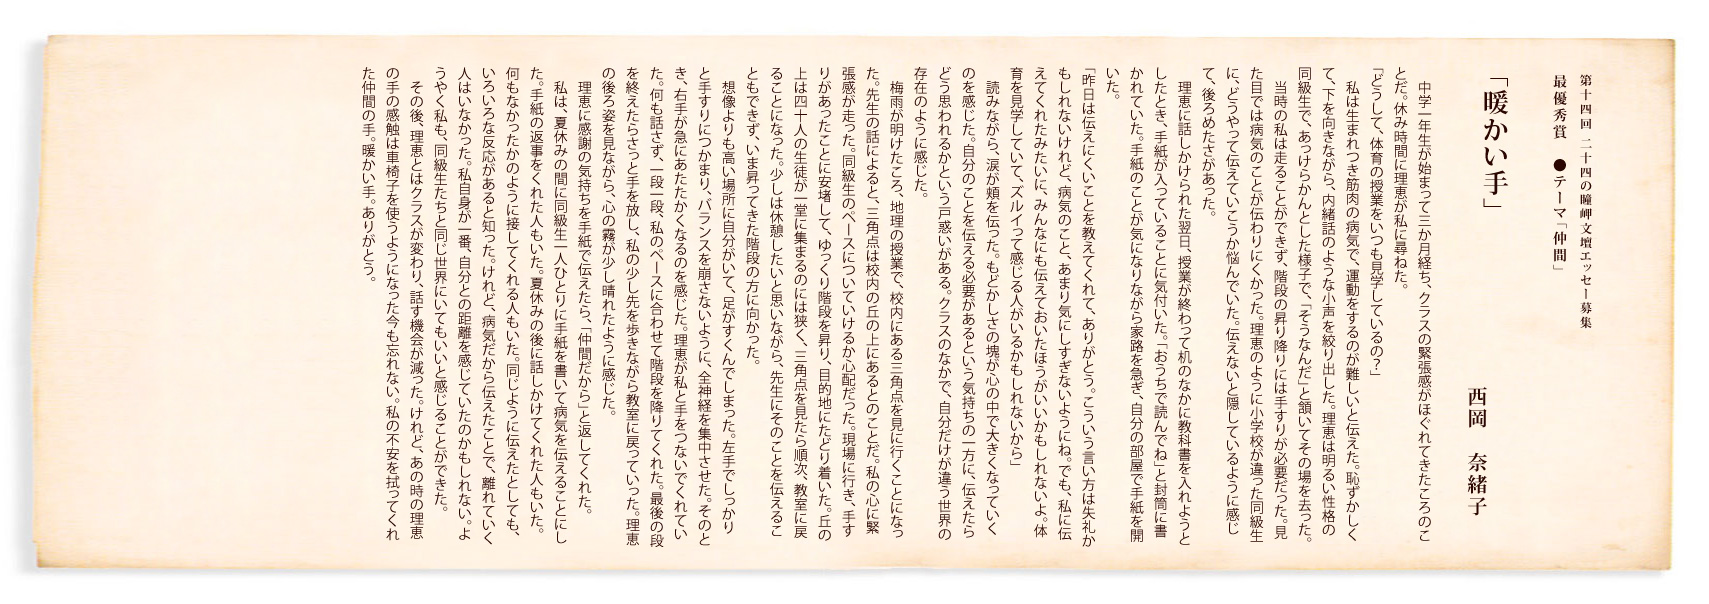 第十四回 二十四の瞳岬文壇エッセー募集
最優秀賞 ●テーマ「仲間」
「暖かい手」
西岡 奈緒子
中学一年生が始まって三か月経ち、クラスの緊張感がほぐれてきたころのこ
とだ。休み時間に理恵が私に尋ねた。
「どうして、体育の授業をいつも見学しているの?」
私は生まれつき筋肉の病気で、運動をするのが難しいと伝えた。恥ずかしく
て、下を向きながら、内緒話のような小声を絞り出した。理恵は明るい性格の
同級生で、あっけらかんとした様子で、「そうなんだ」と頷いてその場を去った。
当時の私は走ることができず、階段の昇り降りには手すりが必要だった。見
た目では病気のことが伝わりにくかった。理恵のように小学校が違った同級生
に、どうやって伝えていこうか悩んでいた。伝えないと隠しているように感じ
て、後ろめたさがあった。
理恵に話しかけられた翌日、授業が終わって机のなかに教科書を入れようと
したとき、手紙が入っていることに気付いた。「おうちで読んでね」と封筒に書
かれていた。手紙のことが気になりながら家路を急ぎ、自分の部屋で手紙を開
いた。
「昨日は伝えにくいことを教えてくれて、ありがとう。こういう言い方は失礼か
もしれないけれど、病気のこと、あまり気にしすぎないようにね。でも、私に伝
えてくれたみたいに、みんなにも伝えておいたほうがいいかもしれないよ。体
育を見学していて、ズルイって感じる人がいるかもしれないから」
読みながら、涙が頬を伝った。もどかしさの塊が心の中で大きくなっていく
のを感じた。自分のことを伝える必要があるという気持ちの一方に、伝えたら
どう思われるかという戸惑いがある。クラスのなかで、自分だけが違う世界の
存在のように感じた。
梅雨が明けたころ、地理の授業で、校内にある三角点を見に行くことになっ
た。先生の話によると、三角点は校内の丘の上にあるとのことだ。私の心に緊
張感が走った。同級生のペースについていけるか心配だった。現場に行き、手す
りがあったことに安堵して、ゆっくり階段を昇り、目的地にたどり着いた。丘の
上は四十人の生徒が一堂に集まるのには狭く、三角点を見たら順次、教室に戻
ることになった。少しは休憩したいと思いながら、先生にそのことを伝えるこ
ともできず、いま昇ってきた階段の方に向かった。
想像よりも高い場所に自分がいて、足がすくんでしまった。左手でしっかり
と手すりにつかまり、バランスを崩さないように、全神経を集中させた。そのと
き、右手が急にあたたかくなるのを感じた。理恵が私と手をつないでくれてい
た。何も話さず、一段一段、私のペースに合わせて階段を降りてくれた。最後の段
を終えたらさっと手を放し、私の少し先を歩きながら教室に戻っていった。理恵
の後ろ姿を見ながら、心の霧が少し晴れたように感じた。
理恵に感謝の気持ちを手紙で伝えたら、「仲間だから」と返してくれた。
私は、夏休みの間に同級生一人ひとりに手紙を書いて病気を伝えることにし
た。手紙の返事をくれた人もいた。夏休みの後に話しかけてくれた人もいた。
何もなかったかのように接してくれる人もいた。同じように伝えたとしても、
いろいろな反応があると知った。けれど、病気だから伝えたことで、離れていく
人はいなかった。私自身が一番、自分との距離を感じていたのかもしれない。よ
うやく私も、同級生たちと同じ世界にいてもいいと感じることができた。
その後、理恵とはクラスが変わり、話す機会が減った。けれど、あの時の理恵
の手の感触は車椅子を使うようになった今も忘れない。私の不安を拭ってくれ
た仲間の手。暖かい手。ありがとう。